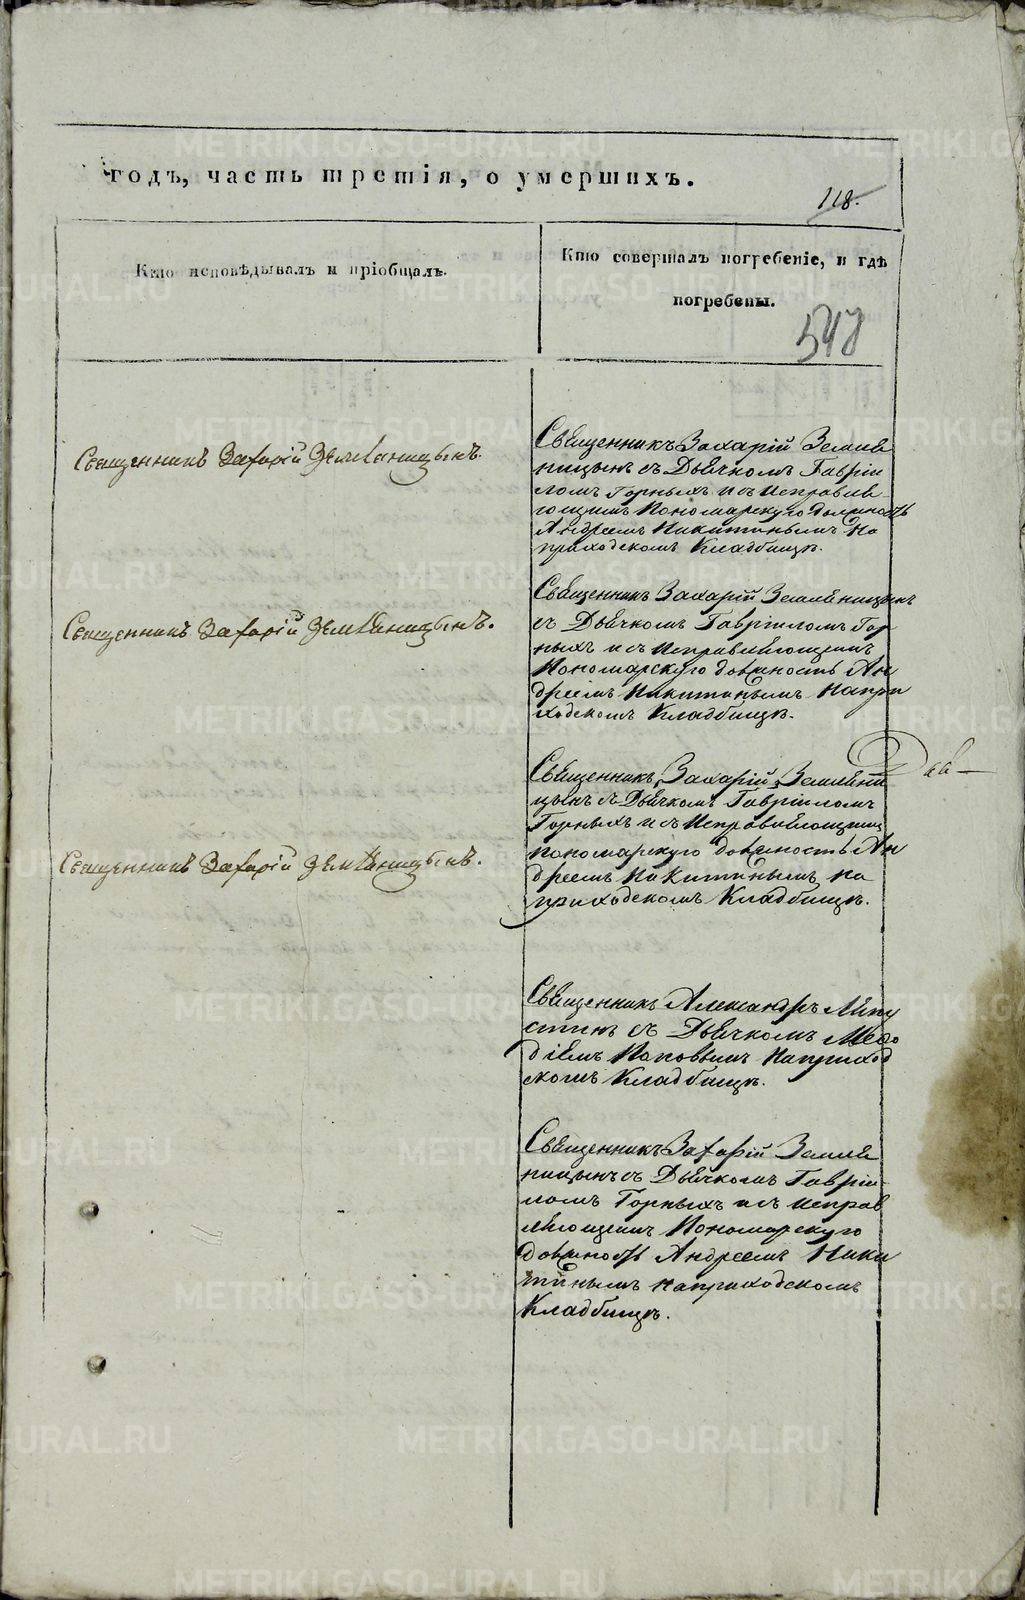 годъ, часть третія, о умершихъ.
118.
Кто исповѣдывалъ и пріобщалъ.
Кто совершалъ погребеніе, и гдѣ
погребены.
547
Священникъ Захарій Земляницынъ.
Священникъ Захарій Земля
ницынъ съ Дьячкомъ Гавріи
ломъ Горныхъ и съ исправля
ющимъ Пономарскую должность
Андреемъ Никитинымъ на
приходскомъ Кладбищѣ.
Священникъ Захарій Земляницынъ.
Священникъ Захарій Земляницынъ
съ Дьячкомъ Гавріиломъ Гор
ныхъ и съ исправляющимъ
Пономарскую должность Ан
дреемъ Никитинымъ на при
ходскомъ Кладбищѣ.
Священникъ Захарій Земляницынъ.
Священникъ Захарій Земляни
цынъ съ Дьячкомъ Гавріиломъ
Горныхъ и съ исправляющимъ
пономарскую должность Ан
дреемъ Никитинымъ на
приходскомъ Кладбищѣ.
Священникъ Александръ Липу
стинъ съ Дьячкомъ Мефо
діемъ Поповымъ на приход
скомъ Кладбищѣ.
Священникъ Захарій Земля
ницынъ съ Дьячкомъ Гавріи
ломъ Горныхъ и съ исправ
ляющимъ Пономарскую
должность Андреемъ Ники
тинымъ на приходскомъ
Кладбищѣ.
METRIKI.GASO-URAL.RU